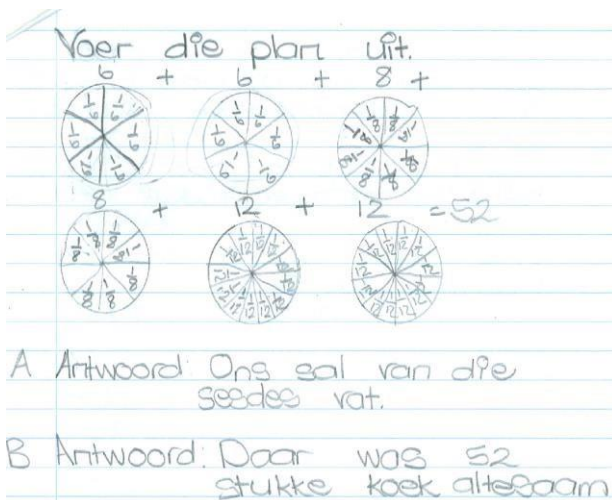 Voer die plan uit.
6 + 6 + 8 +
1/6 1/6 1/6 1/6 1/6 1/6
1/6 1/6 1/6 1/6 1/6 1/6
1/8 1/8 1/8 1/8 1/8 1/8 1/8 1/8
8 + 12 + 12 = 52
1/8 1/8 1/8 1/8 1/8 1/8 1/8
1/12 1/12 1/12 1/12 1/12 1/12 1/12 1/12 1/12 1/12 1/12 1/12
1/12 1/12 1/12 1/12 1/12 1/12 1/12 1/12 1/12 1/12
A Antwoord: Ons sal van die
sesdes vat.
B Antwoord: Daar was 52
stukke koek altesaam